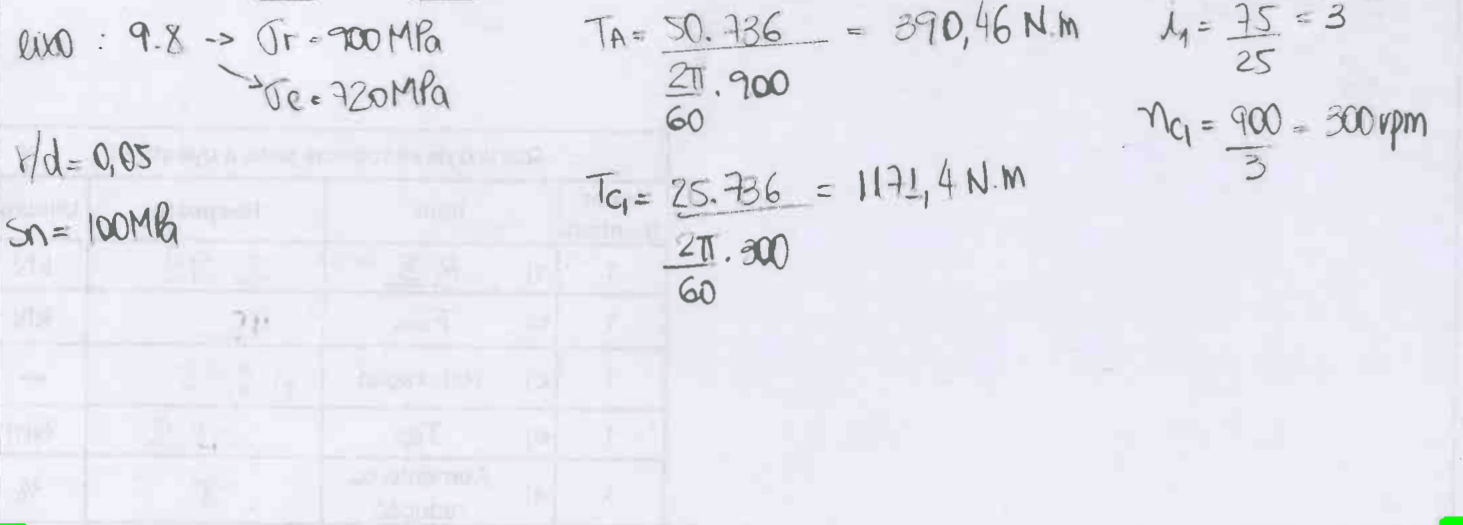 eixo : 9.8 -> σr = 900 MPa
σe = 720 MPa
r/d = 0,05
Sn = 100MPa
TA = 50.736 / (2π/60 . 900) = 390,46 N.m
TC1 = 25.736 / (2π/60 . 300) = 1171,4 N.m
i1 = 75/25 = 3
nC1 = 900/3 = 300 rpm